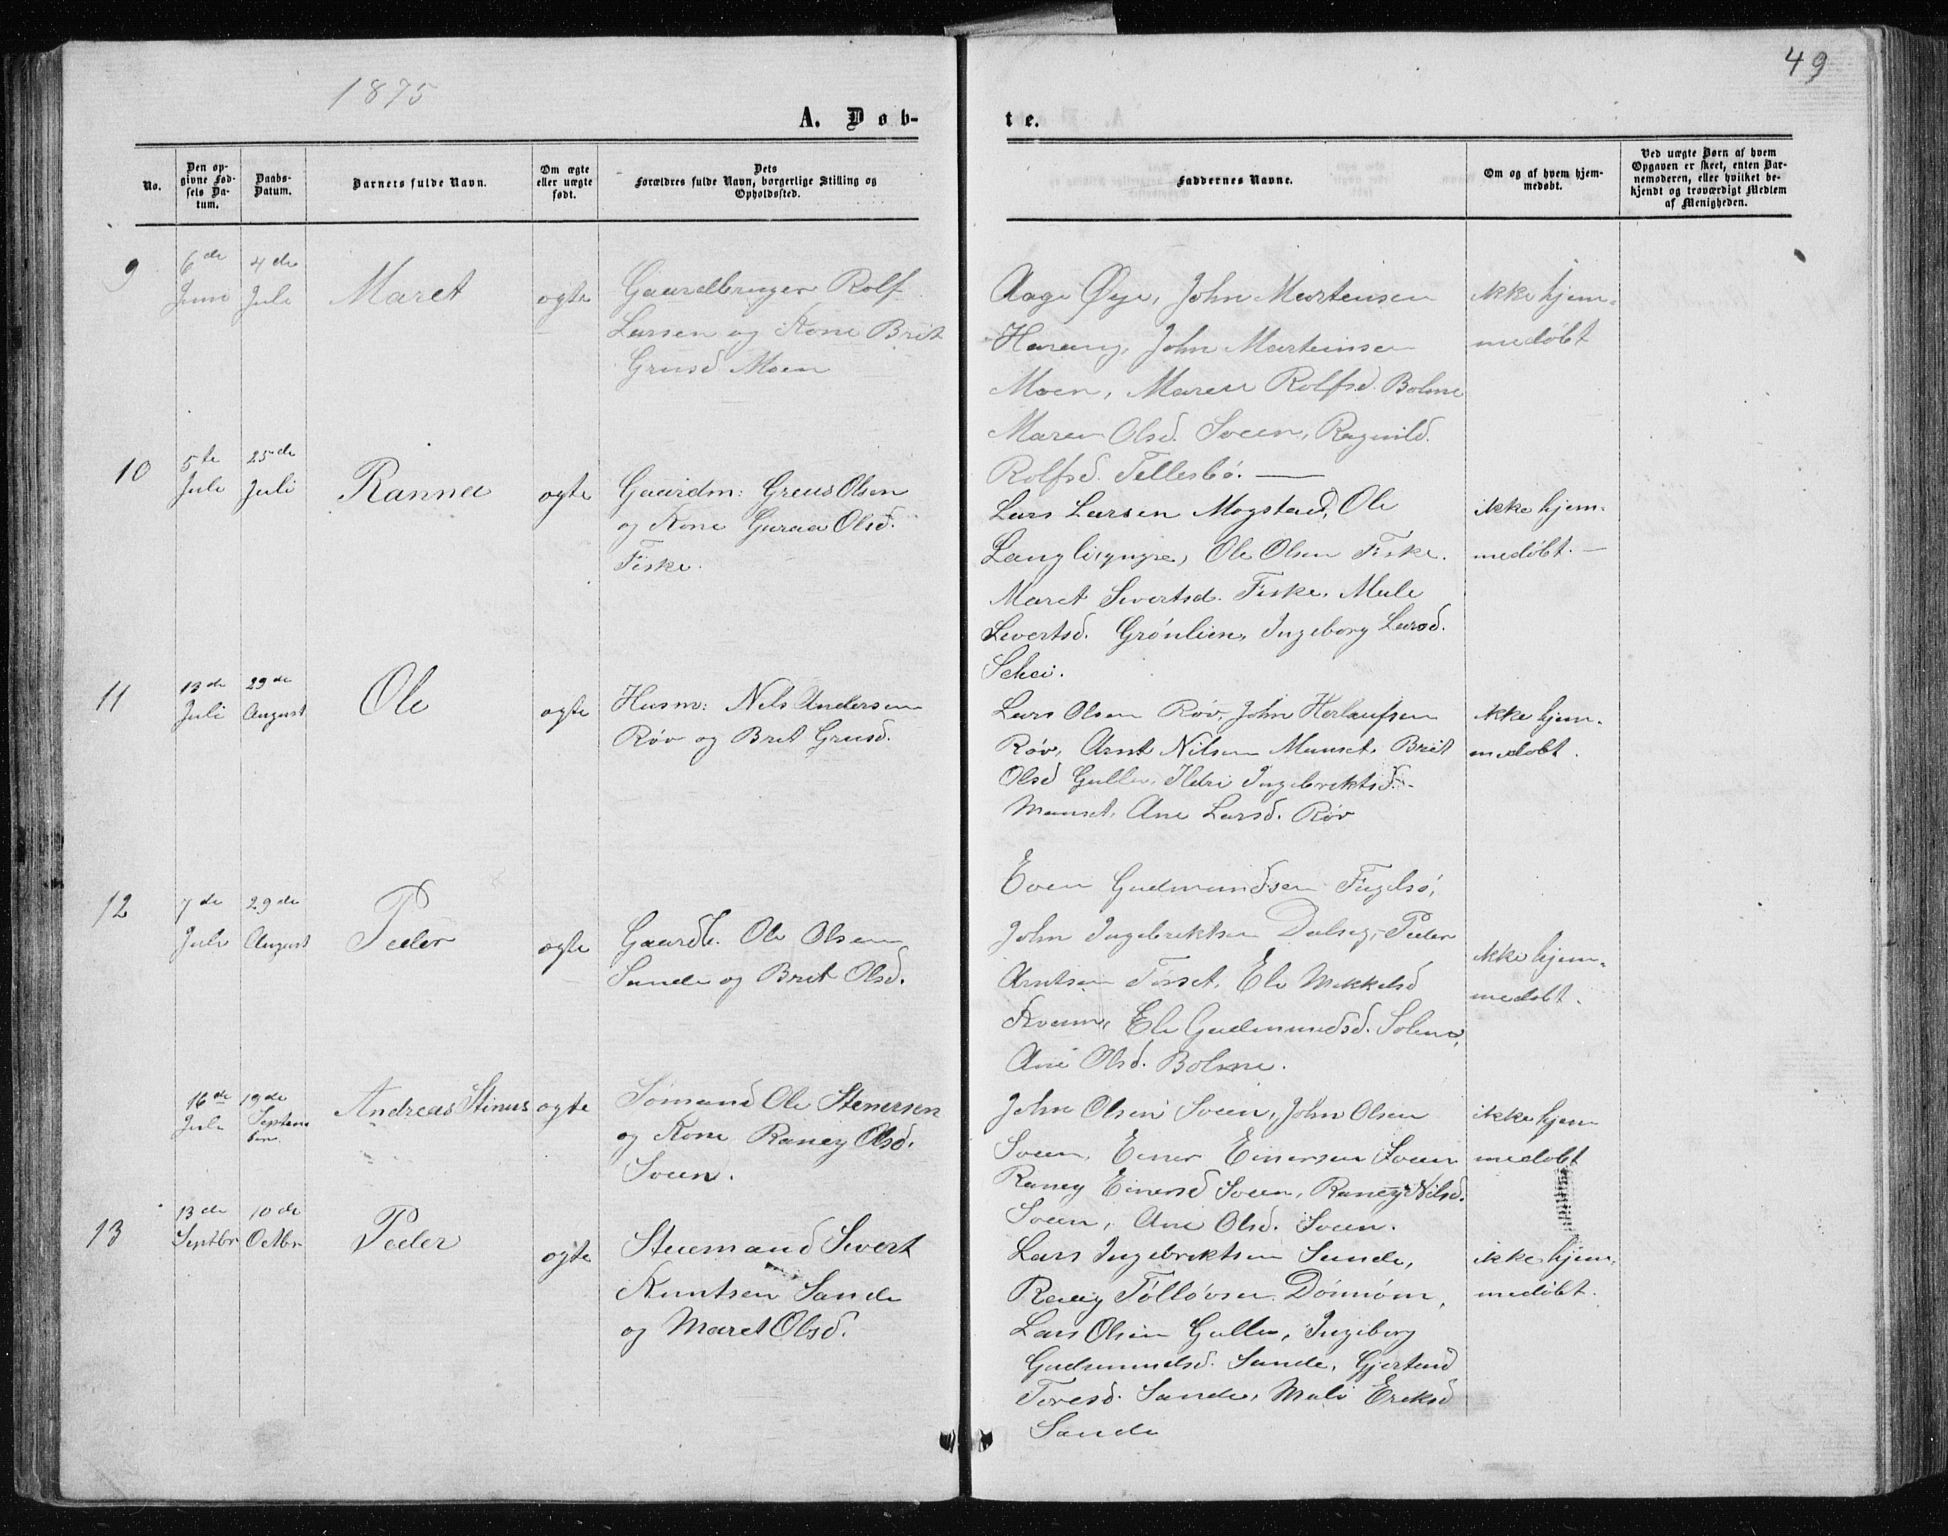 1875
49
A. Døb-
te.
No.
Den op-
givne Fød-
sels Da-
tum.
Daabs-
Datum.
Barnets fulde Navn.
Om ægte
eller uægte
født.
Dets
Forældres fulde Navn, borgerlige Stilling og
Opholdssted.
Faddernes Navne.
Om og af hvem hjem-
medøbt.
Ved uægte Børn af hvem
Opgaven er skeet, enten Bar-
nemoderen, eller hvilket be-
kjendt og troværdigt Medlem
af Menigheden.
9
6 de
Juni
4 de
Juli
Maret
ogte
Gaardbruger Rolf
Larsen og Kone Brit
Grusd Moen
Aage Øye, John Martensen
Harang, John Marteinsen
Moen, Maren Rolfsd. Bolme
Maren Olsd. Soeen, Ragnild.
Rolfsd. Tellesbø.
ikke hjem-
medøbt
10
5te
Juli
25 de
Juli
Ranna
ogte
Gaardm: Greus Olsen
og Kone Guraa Olsd.
Fiske.
Lars Larsen Mogstad, Ole
Olsen Fiske.
Maret Sivertsd. Fiske, Male
Sivertsd. Grønlien, Ingeborg Larsd.
Schei.
ikke hjem-
medøbt.
11
13 de
Juli
29 de
August
Ole
ogte
Husm: Nils Andersen
Røv og Brit Grusd.
Lars Olsen Røv, John Herlaufsen
Røv, Arnt Nilsen Munset, Brit
Olsd Gulla, Ildri Ingebrektsd.
Munset, Ane Larsd. Røv
ikke hjem-
medøbt.
12
7 de
Juli
29 de
August
Peder
ogte
Gaardb. Ole Olsen
Sande og Brit Olsd.
Even Gudmundsen Fugelsø,
John Ingebrektsen Dalseg, Peder
Arntsen Tørset, Eli Mikkelsd
Kvam, Eli Gudmundsd. Solem,
Ane Olsd. Bolme.
ikke hjem-
medøbt.
16 de
Juli
19 de
Septem
ber.
Andreas Stinus
ogte
Sømand Ole Stenersen
og Kone Raney Olsd.
Soeen.
John Olsen Soeen, John Olsen
Soeen, Einer Einersen Soeen
Raney Einersd Soeen, Raney Nilsd.
Soeen, Ane Olsd. Soeen.
ikke hjem
medøbt
13
13 de
Septbr
10 de
Octbr
Peder
ogte
Stuemand Sivert
Knutsen Sande
og Maret Olsd.
Lars Ingebrektsen Sande,
Tølløvsen Dønnøm,
Lars Olsen Gulla, Ingeborg
Gudmundsd. Sande, Gjertrud
Toresd. Sande, Mali Eriksd
Sande
ikke hjem-
medøbt.